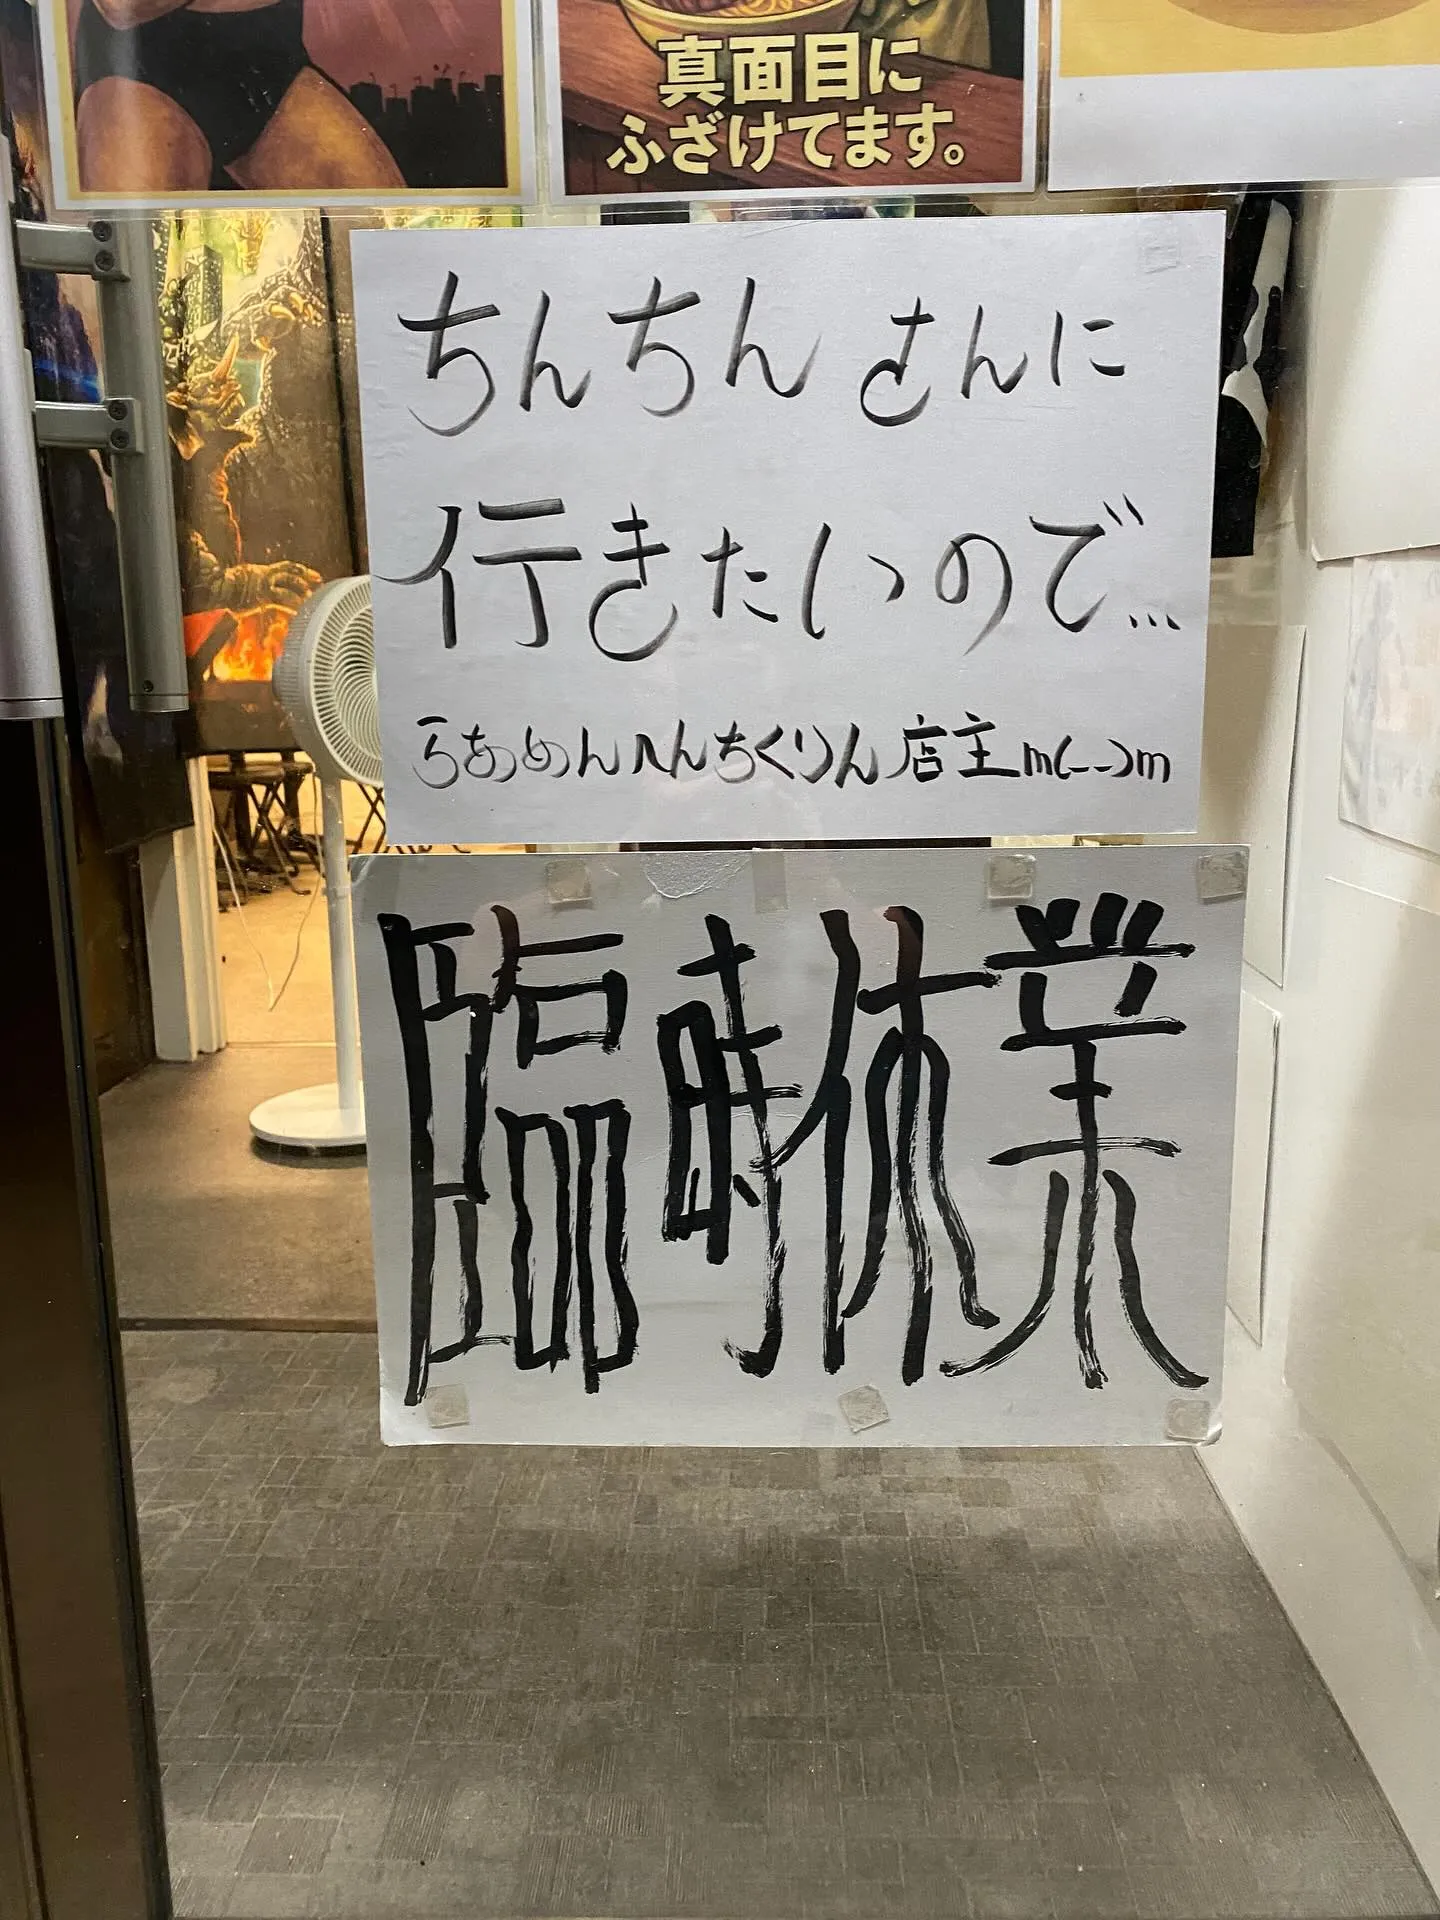 真面目に
ふざけてます。
ちんちんさんに
行きたいので…
らあめんへんちくりん店主m(--)m
臨時休業